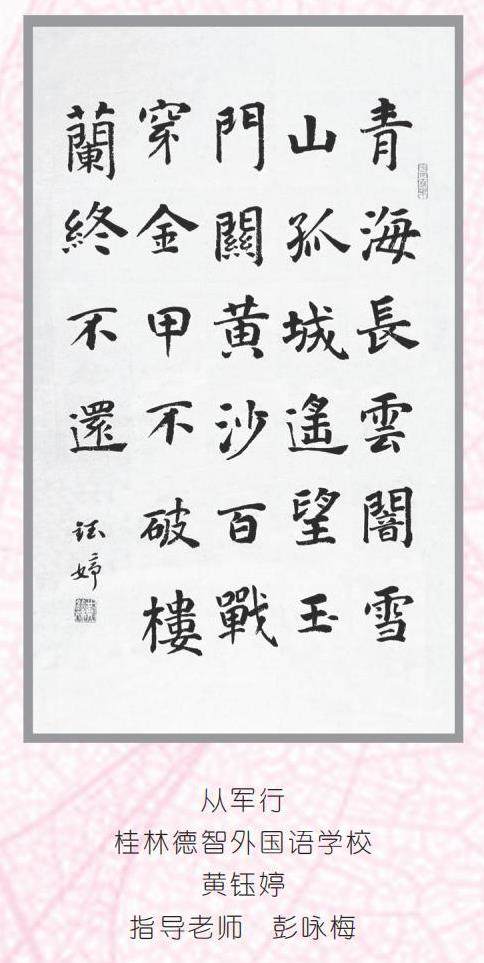 青海長雲闇雪
山孤城遙望玉
門關黄沙百戰
穿金甲不破樓
蘭終不還
钰婷
从军行
桂林德智外国语学校
黄钰婷
指导老师 彭咏梅